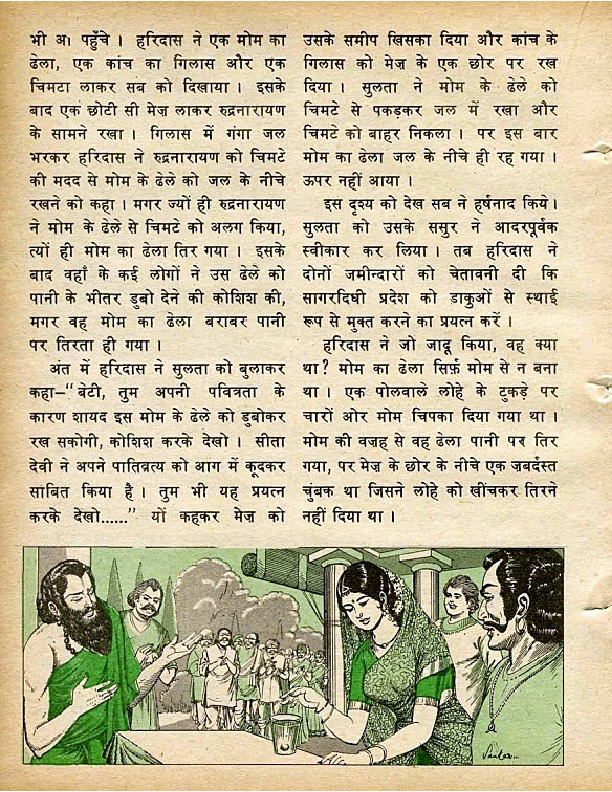 भी आ पहुँचे । हरिदास ने एक मोम का
ढेला, एक कांच का गिलास और एक
चिमटा लाकर सब को दिखाया । इसके
बाद एक छोटी सी मेज़ लाकर रुद्रनारायण
के सामने रखा । गिलास में गंगा जल
भरकर हरिदास ने रुद्रनारायण को चिमटे
की मदद से मोम के ढेले को जल के नीचे
रखने को कहा । मगर ज्यों ही रुद्रनारायण
ने मोम के ढेले से चिमटे को अलग किया,
त्यों ही मोम का ढेला तिर गया । इसके
बाद वहाँ के कई लोगों ने उस ढेले को
पानी के भीतर डुबो देने की कोशिश की,
मगर वह मोम का ढेला बराबर पानी
पर तिरता ही गया ।
अंत में हरिदास ने सुलता को बुलाकर
कहा–“बेटी, तुम अपनी पवित्रता के
कारण शायद इस मोम के ढेले को डुबोकर
रख सकोगी, कोशिश करके देखो । सीता
देवी ने अपने पातिव्रत्य को आग में कूदकर
साबित किया है । तुम भी यह प्रयत्न
करके देखो......” यों कहकर मेज़ को
उसके समीप खिसका दिया और कांच के
गिलास को मेज़ के एक छोर पर रख
दिया । सुलता ने मोम के ढेले को
चिमटे से पकड़कर जल में रखा और
चिमटे को बाहर निकला । पर इस बार
मोम का ढेला जल के नीचे ही रह गया ।
ऊपर नहीं आया ।
इस दृश्य को देख सब ने हर्षनाद किये ।
सुलता को उसके ससुर ने आदरपूर्वक
स्वीकार कर लिया । तब हरिदास ने
दोनों जमीन्दारों को चेतावनी दी कि
सागरदिघी प्रदेश को डाकुओं से स्थाई
रूप से मुक्त करने का प्रयत्न करें ।
हरिदास ने जो जादू किया, वह क्या
था ? मोम का ढेला सिर्फ़ मोम से न बना
था । एक पोलवाले लोहे के टुकड़े पर
चारों ओर मोम चिपका दिया गया था ।
मोम की वजह से वह ढेला पानी पर तिर
गया, पर मेज़ के छोर के नीचे एक जबर्दस्त
चुंबक था जिसने लोहे को खींचकर तिरने
नहीं दिया था ।